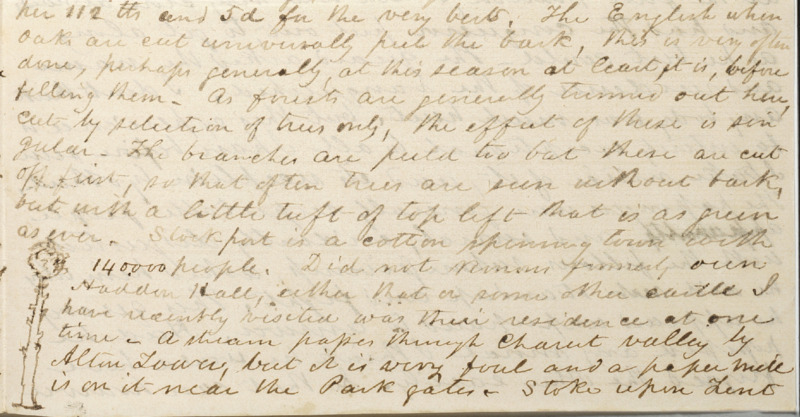 her 112 tts and 5d for the very best. The English when
oaks are cut universally peel the bark, this is very often
done, perhaps generally, at this season at least it is, before
felling them - As forests are generally trimmed out here,
cut by selection of trees only, the effect of these is sin
gular - The branches are peeld too but these are cut
off first, so that often trees are seen without bark,
but with a little tuft of top left that is as green
as ever - Stockport is a cotton spinning town with
140000 people. Did not own
Haddon Hall, either that or some other castle I
have recently visited was their residence at one
time - A stream passes through valley by
Alton Tower, but it is very foul and a paper mill
is on it near the Park gates - Stoke upon Trent